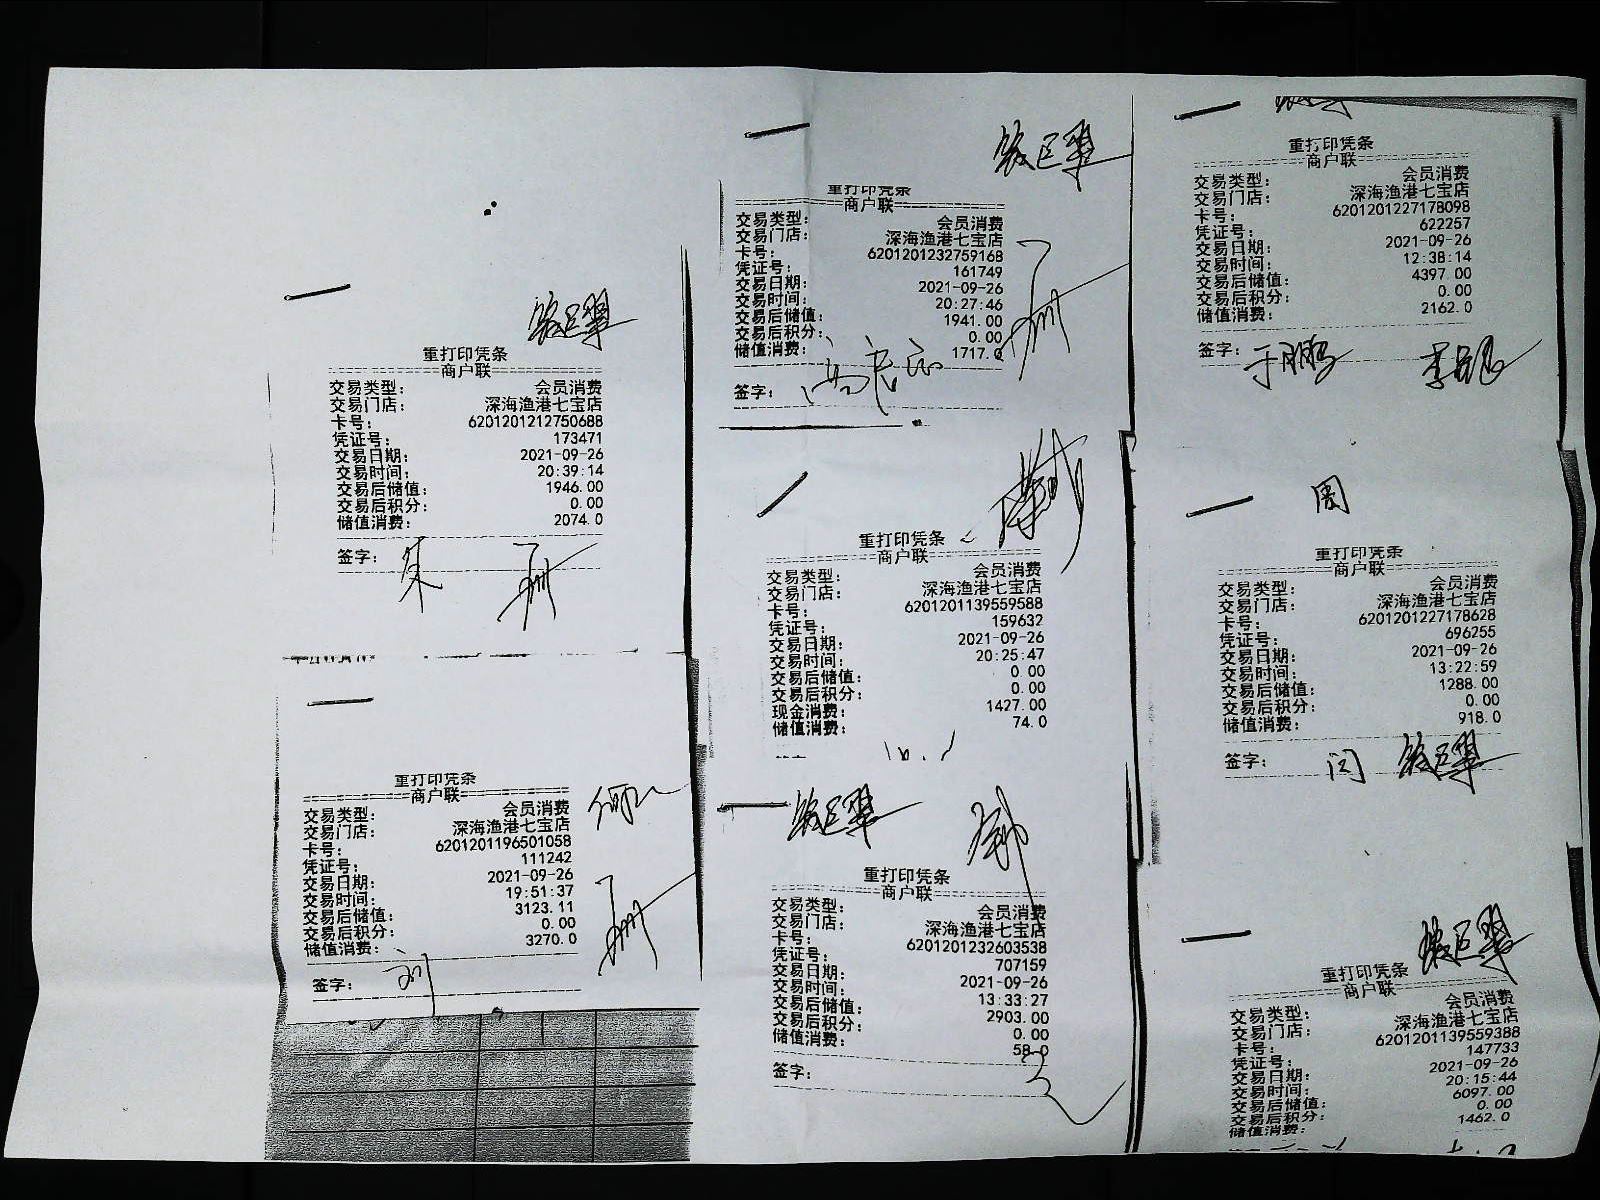 重打印凭条
商户联
交易类型： 会员消费
交易门店： 深海渔港七宝店
卡号： 6201201212750688
凭证号： 173471
交易日期： 2021-09-26
交易时间： 20:39:14
交易后储值： 1946.00
交易后积分： 0.00
储值消费： 2074.0
签字： 朱
重打印凭条
商户联
交易类型： 会员消费
交易门店： 深海渔港七宝店
卡号： 6201201196501058
凭证号： 111242
交易日期： 2021-09-26
交易时间： 19:51:37
交易后储值： 3123.11
交易后积分： 0.00
储值消费： 3270.0
签字： 刘
重打印凭条
商户联
交易类型： 会员消费
交易门店： 深海渔港七宝店
卡号： 6201201232759168
凭证号： 161749
交易日期： 2021-09-26
交易时间： 20:27:46
交易后储值： 1941.00
交易后积分： 0.00
储值消费： 1717.0
签字：
重打印凭条
商户联
交易类型： 会员消费
交易门店： 深海渔港七宝店
卡号： 6201201139559588
凭证号： 159632
交易日期： 2021-09-26
交易时间： 20:25:47
交易后储值： 0.00
交易后积分： 0.00
现金消费： 1427.00
储值消费： 74.0
重打印凭条
商户联
交易类型： 会员消费
交易门店： 深海渔港七宝店
卡号： 6201201232603538
凭证号： 707159
交易日期： 2021-09-26
交易时间： 13:33:27
交易后储值： 2903.00
交易后积分： 0.00
储值消费： 58.0
签字：
重打印凭条
商户联
交易类型： 会员消费
交易门店： 深海渔港七宝店
卡号： 6201201227178098
凭证号： 622257
交易日期： 2021-09-26
交易时间： 12:38:14
交易后储值： 4397.00
交易后积分： 0.00
储值消费： 2162.0
签字： 于鹏
周
重打印凭条
商户联
交易类型： 会员消费
交易门店： 深海渔港七宝店
卡号： 6201201227178628
凭证号： 696255
交易日期： 2021-09-26
交易时间： 13:22:59
交易后储值： 1288.00
交易后积分： 0.00
储值消费： 918.0
签字： 闫
重打印凭条
商户联
交易类型： 会员消费
交易门店： 深海渔港七宝店
卡号： 6201201139559388
凭证号： 147733
交易日期： 2021-09-26
交易时间： 20:15:44
交易后储值： 6097.00
交易后积分： 0.00
储值消费： 1462.0